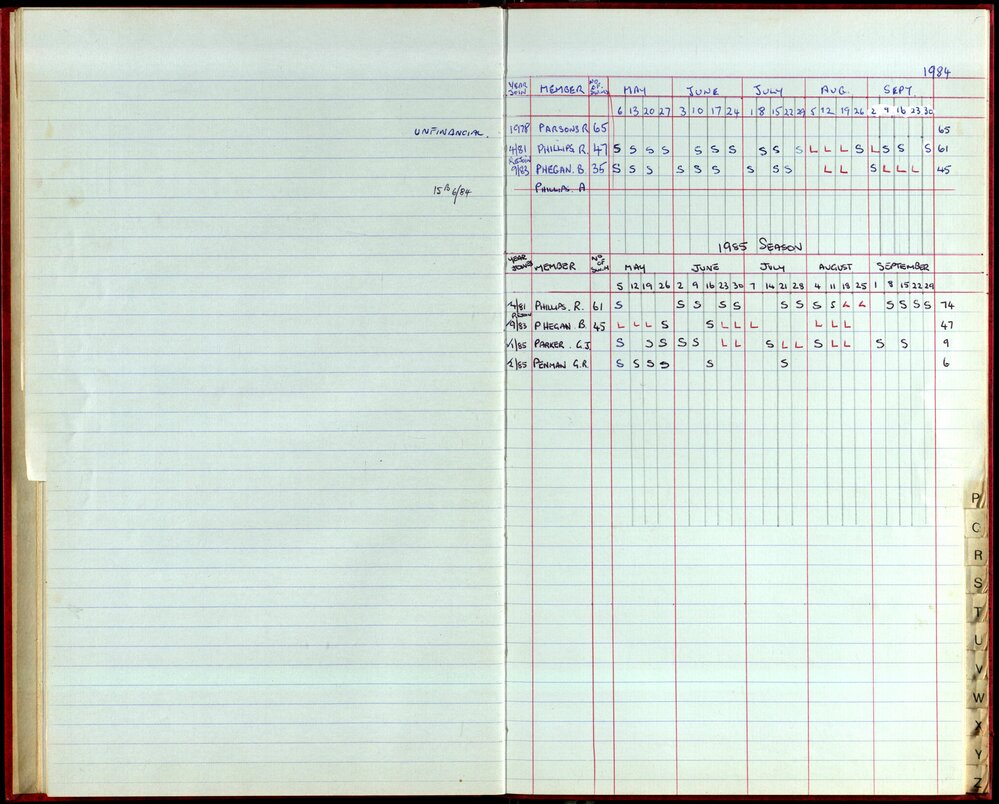 1984
YEAR JOIN MEMBER NO OF SWIMS MAY JUNE JULY AUG. SEPT.
6 13 20 27 3 10 17 24 1 8 15 22 29 5 12 19 26 2 9 16 23 30
UNFINANCIAL. 1978 PARSONS R 65 65
4/81 PHILLIPS R. 47 S S S S S S S S S S L L L S L S S S 61
REJOIN 9/83 PHEGAN. B. 35 S S S S S S S S S L L S L L L 45
15th 6/84 PHILLIPS. A
1985 SEASON
YEAR JOINED MEMBER NO OF SWIM MAY JUNE JULY AUGUST SEPTEMBER
5 12 19 26 2 9 16 23 30 7 14 21 28 4 11 18 25 1 8 15 22 29
4/81 PHILLIPS. R. 61 S S S S S S S S S L L S S S S 74
REJOIN 9/83 PHEGAN. B. 45 L L L S S L L L L L L 47
1/85 PARKER. G.J S S S S S L L S L L S L L S S 9
2/85 PENMAN G.R S S S S S S 6
P
Q
R
S
T
U
V
W
X
Y
Z